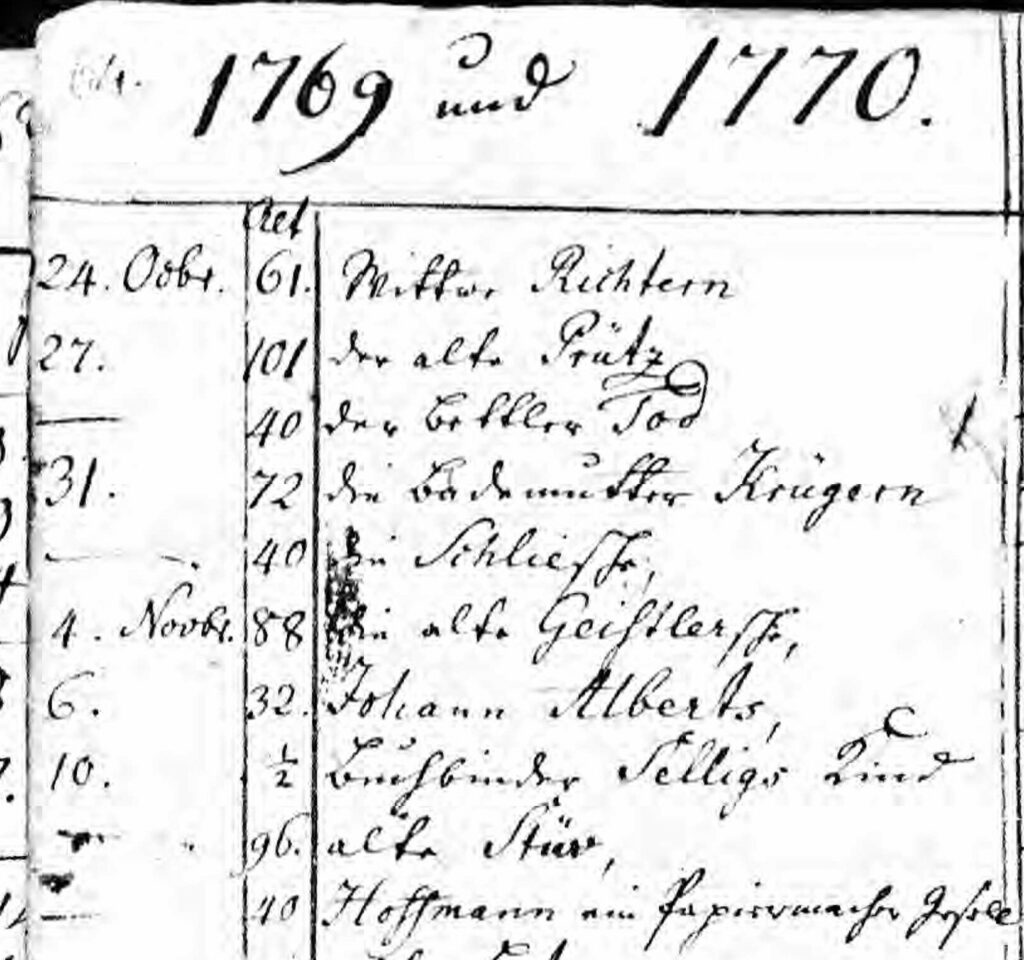 1769 und 1770.
Aet
24. Octbr. 61. Wittwe Richtern
27. 101 der alte Prütz
— 40 der Bettler Tod
31. 72 die Bademutter Krügern
— 40 die Schliefsche,
4. Novbr. 88 die alte Geistlersche,
6. 32. Johann Alberts,
10. ½ Buchbinder Selligs Kind
— " 96. alte Stüv,
— 40 Hoffmann ein Papiermacher Gesell